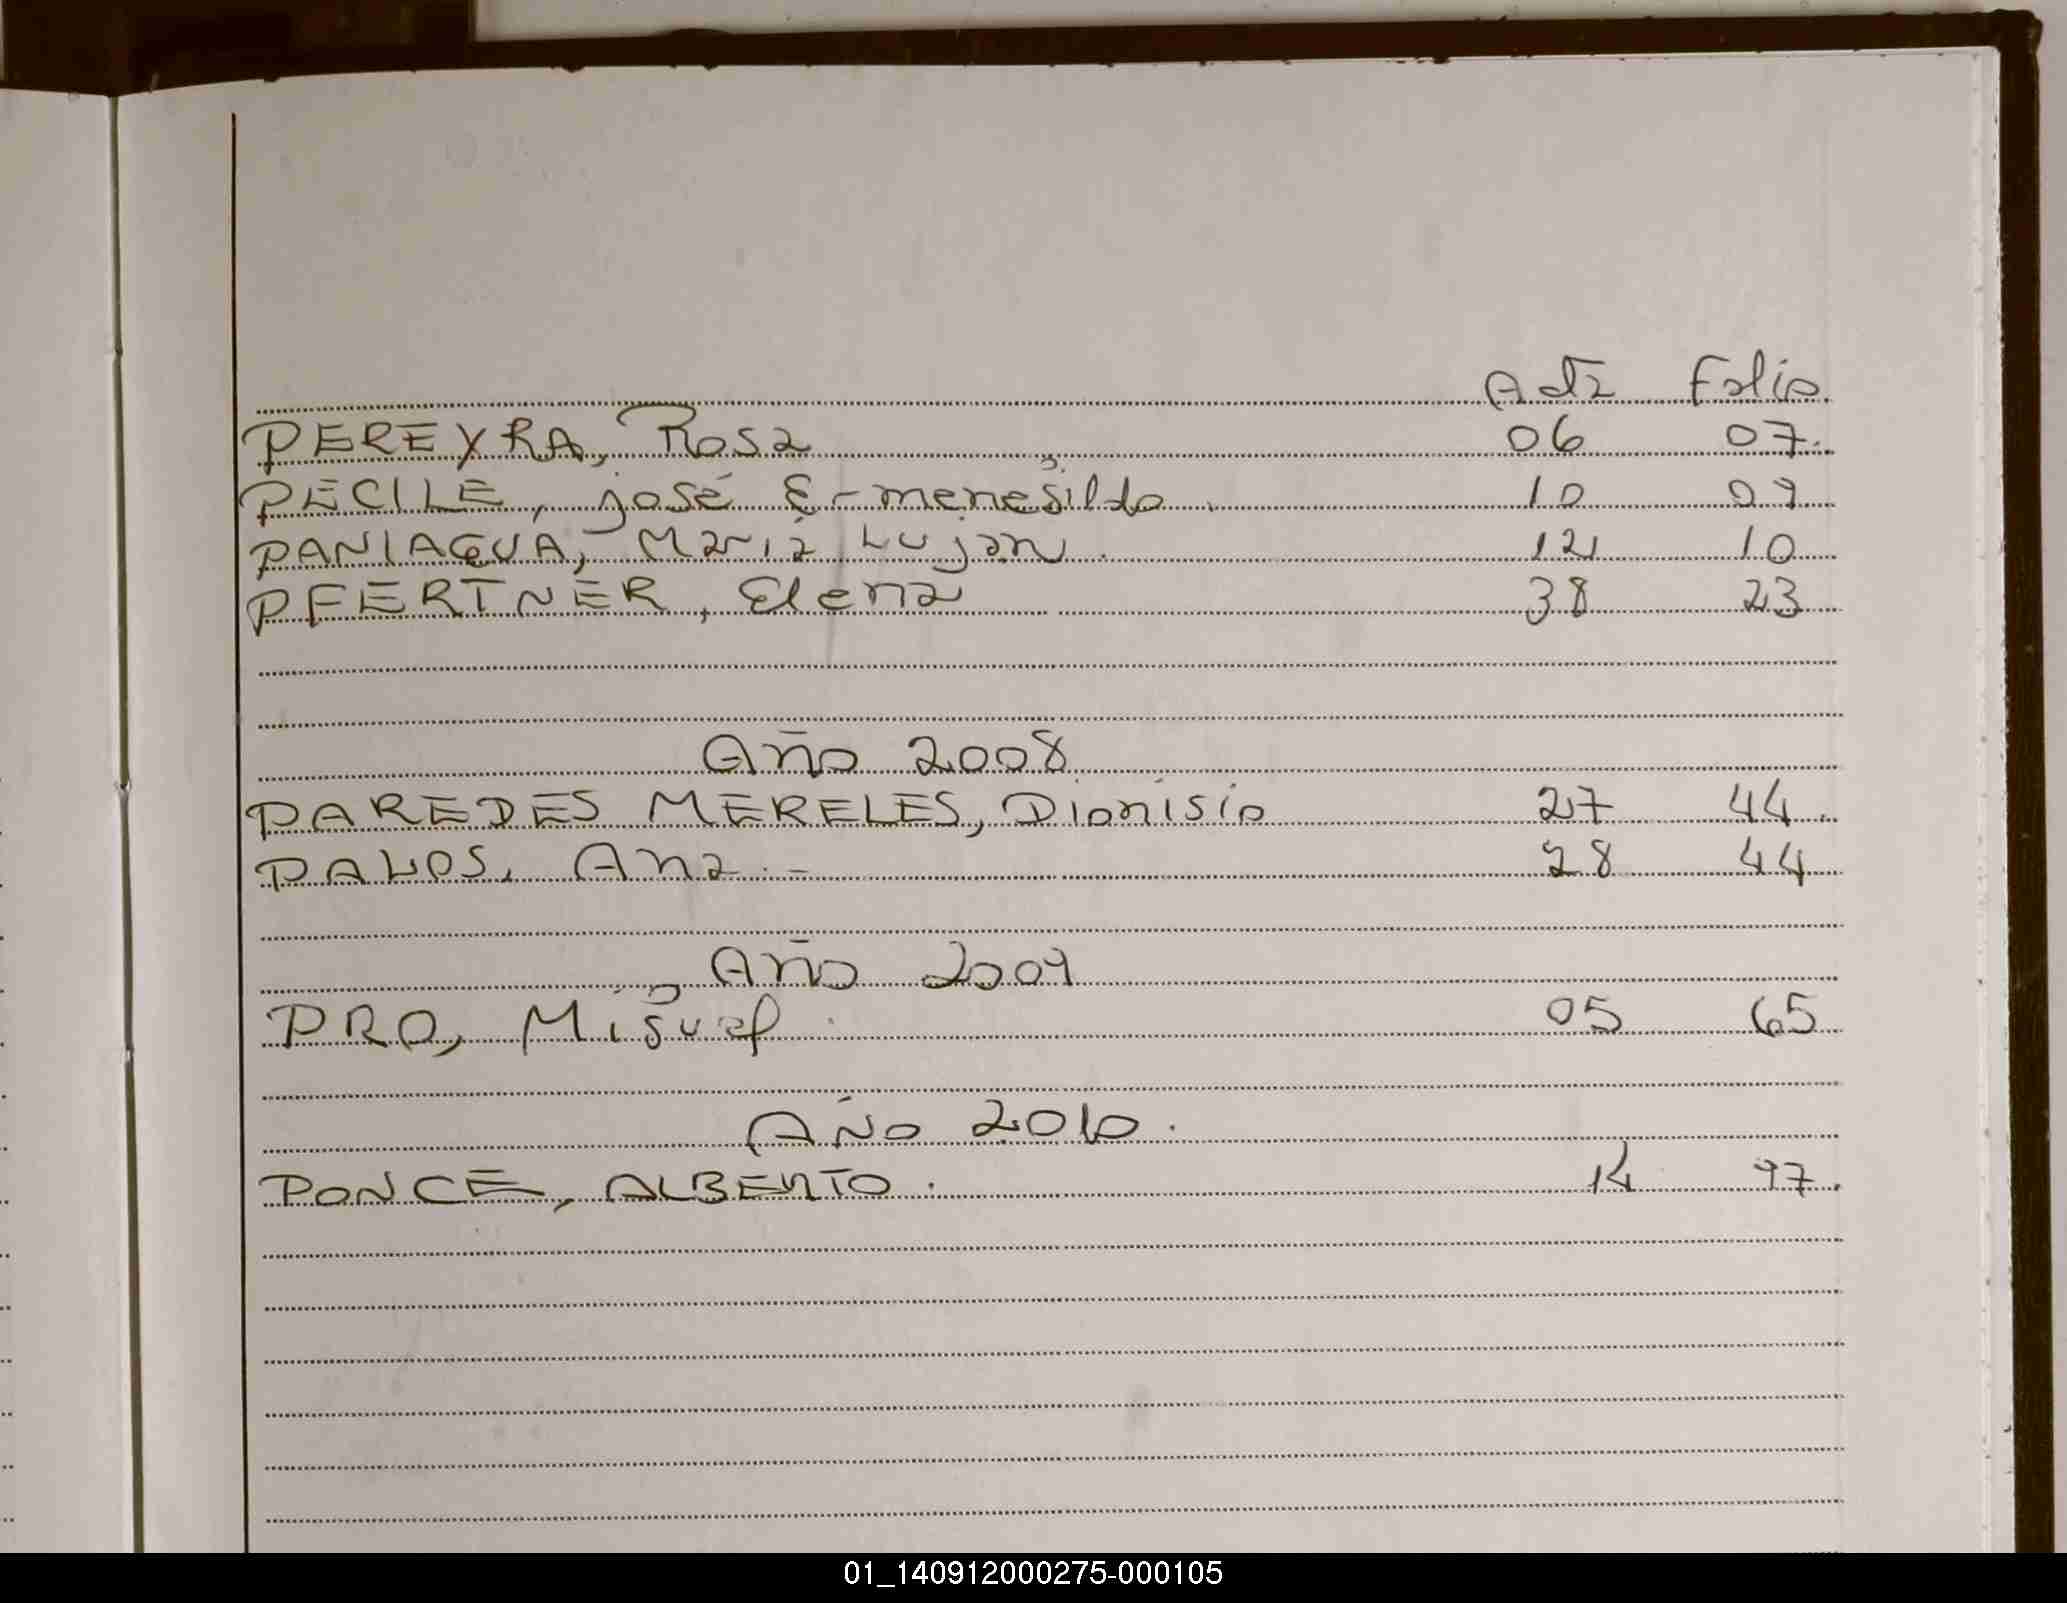 Acta Folio.
PEREYRA, Rosa 06 07.
PECILE, José Ermenegildo. 10 09
PANIAGUA, Maria Lujan. 12 10
PFERTNER, Elena 38 23
Año 2008
PAREDES MERELES, Dionisio 27 44.
PALOS, Ana.- 28 44
Año 2009
PRO, Miguel. 05 65
AÑO 2010.
PONCE, ALBERTO. 14 97.
01_140912000275-000105